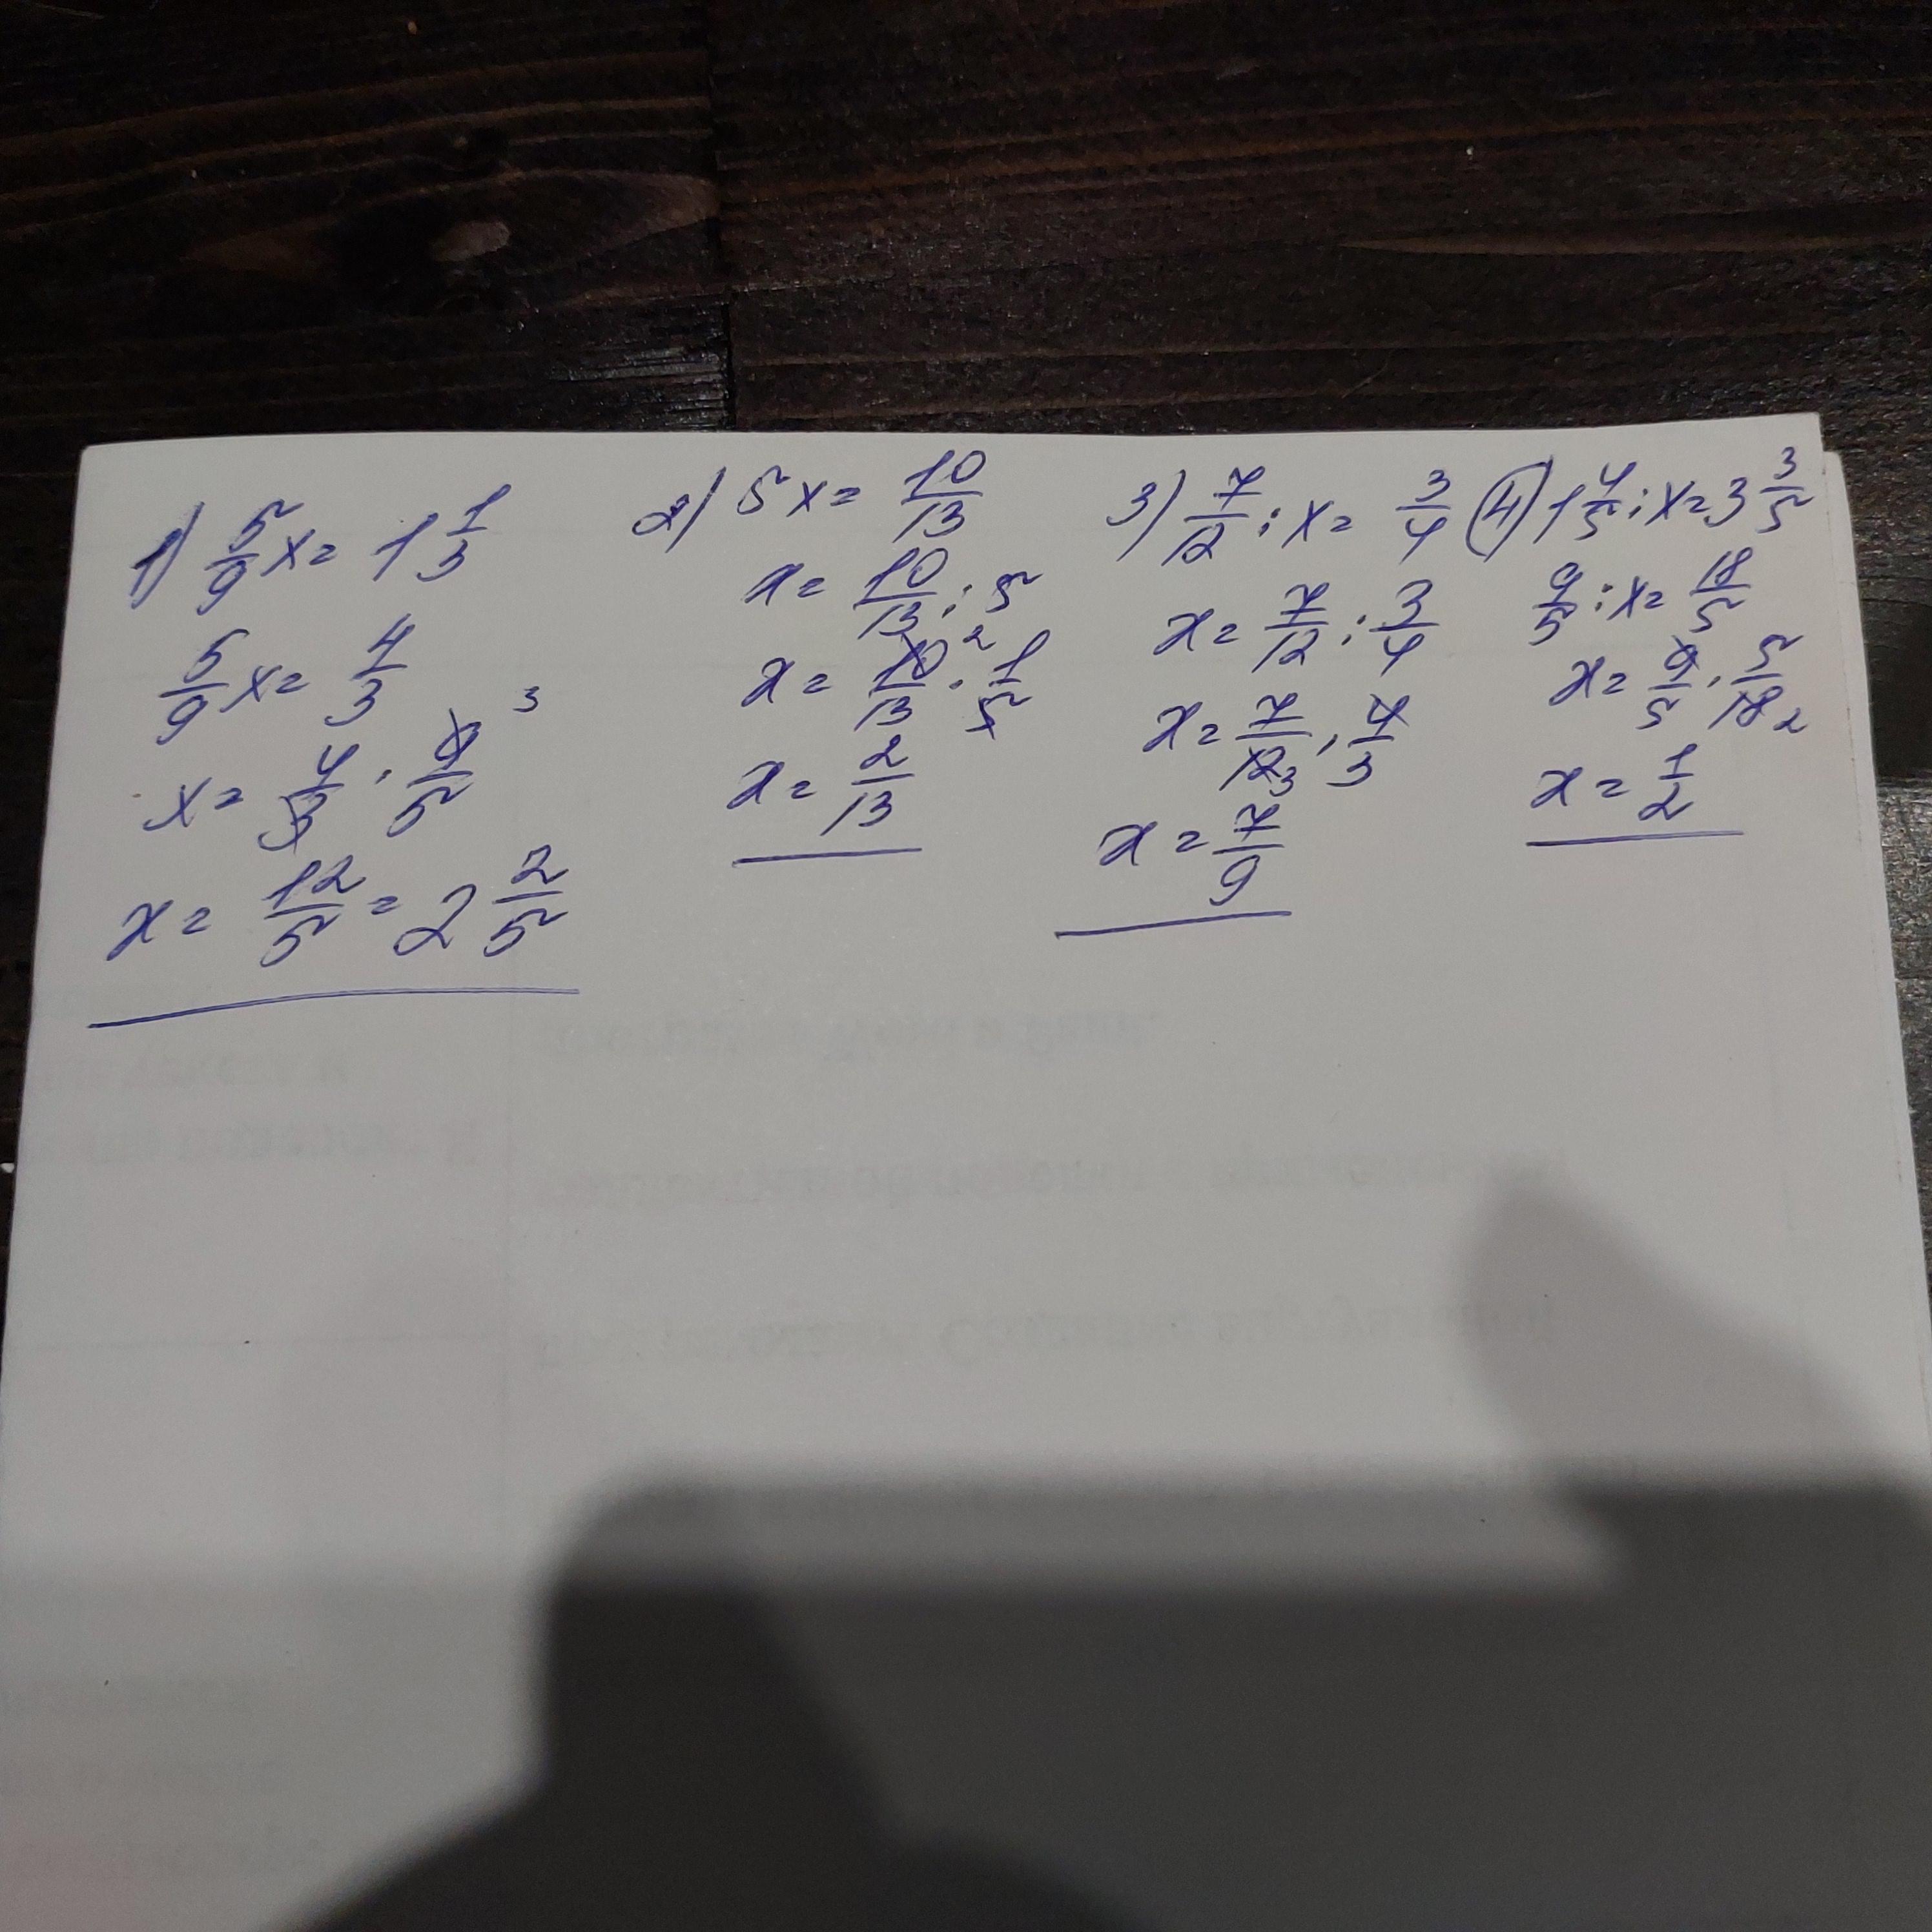 1) 5/9 x = 1 1/3
5/9 x = 4/3
x = 4/3 · 9/5 3
x = 12/5 = 2 2/5
2) 5x = 10/13
x = 10/13 : 5
x = 10/13 2 · 1/5
x = 2/13
3) 7/12 : x = 3/4
x = 7/12 : 3/4
x = 7/12 3 · 4/3
x = 7/9
4) 1 4/5 : x = 3 3/5
9/5 : x = 18/5
x = 9/5 · 5/18 2
x = 1/2